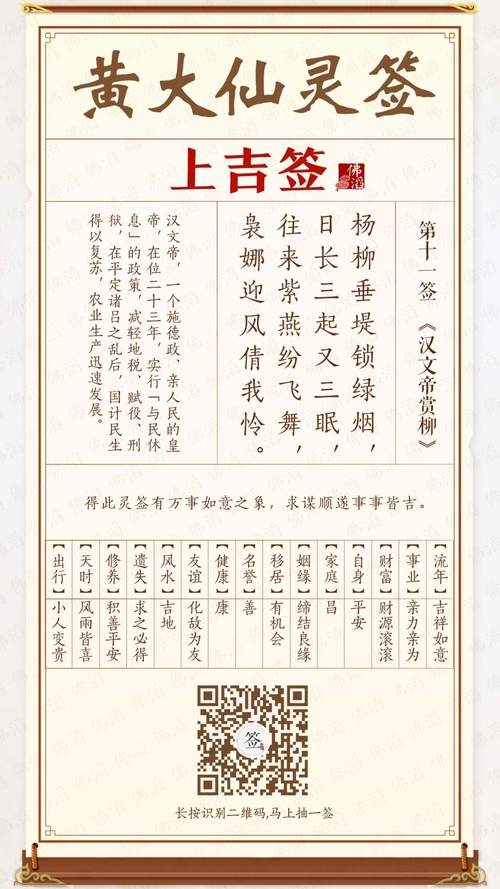 黄大仙灵签
上吉签
佛滔
第十一签 《汉文帝赏柳》
杨柳垂堤锁绿烟，
日长三起又三眠，
往来紫燕纷飞舞，
袅娜迎风倩我怜。
汉文帝，一个施德政、亲人民的皇
帝，在位二十三年，实行「与民休
息」的政策，减轻地税、赋役、刑
狱，在平定诸吕之乱后，国计民生
得以复苏，农业生产迅速发展。
得此灵签有万事如意之象，求谋顺遂事事皆吉。
【流年】吉祥如意
【事业】亲力亲为
【财富】财源滚滚
【自身】平安
【家庭】昌
【姻缘】缔结良缘
【移居】有机会
【名誉】善
【健康】康
【友谊】化敌为友
【风水】吉地
【遗失】求之必得
【修养】积善平安
【天时】风雨皆喜
【出行】小人变贵
签
长按识别二维码,马上抽一签